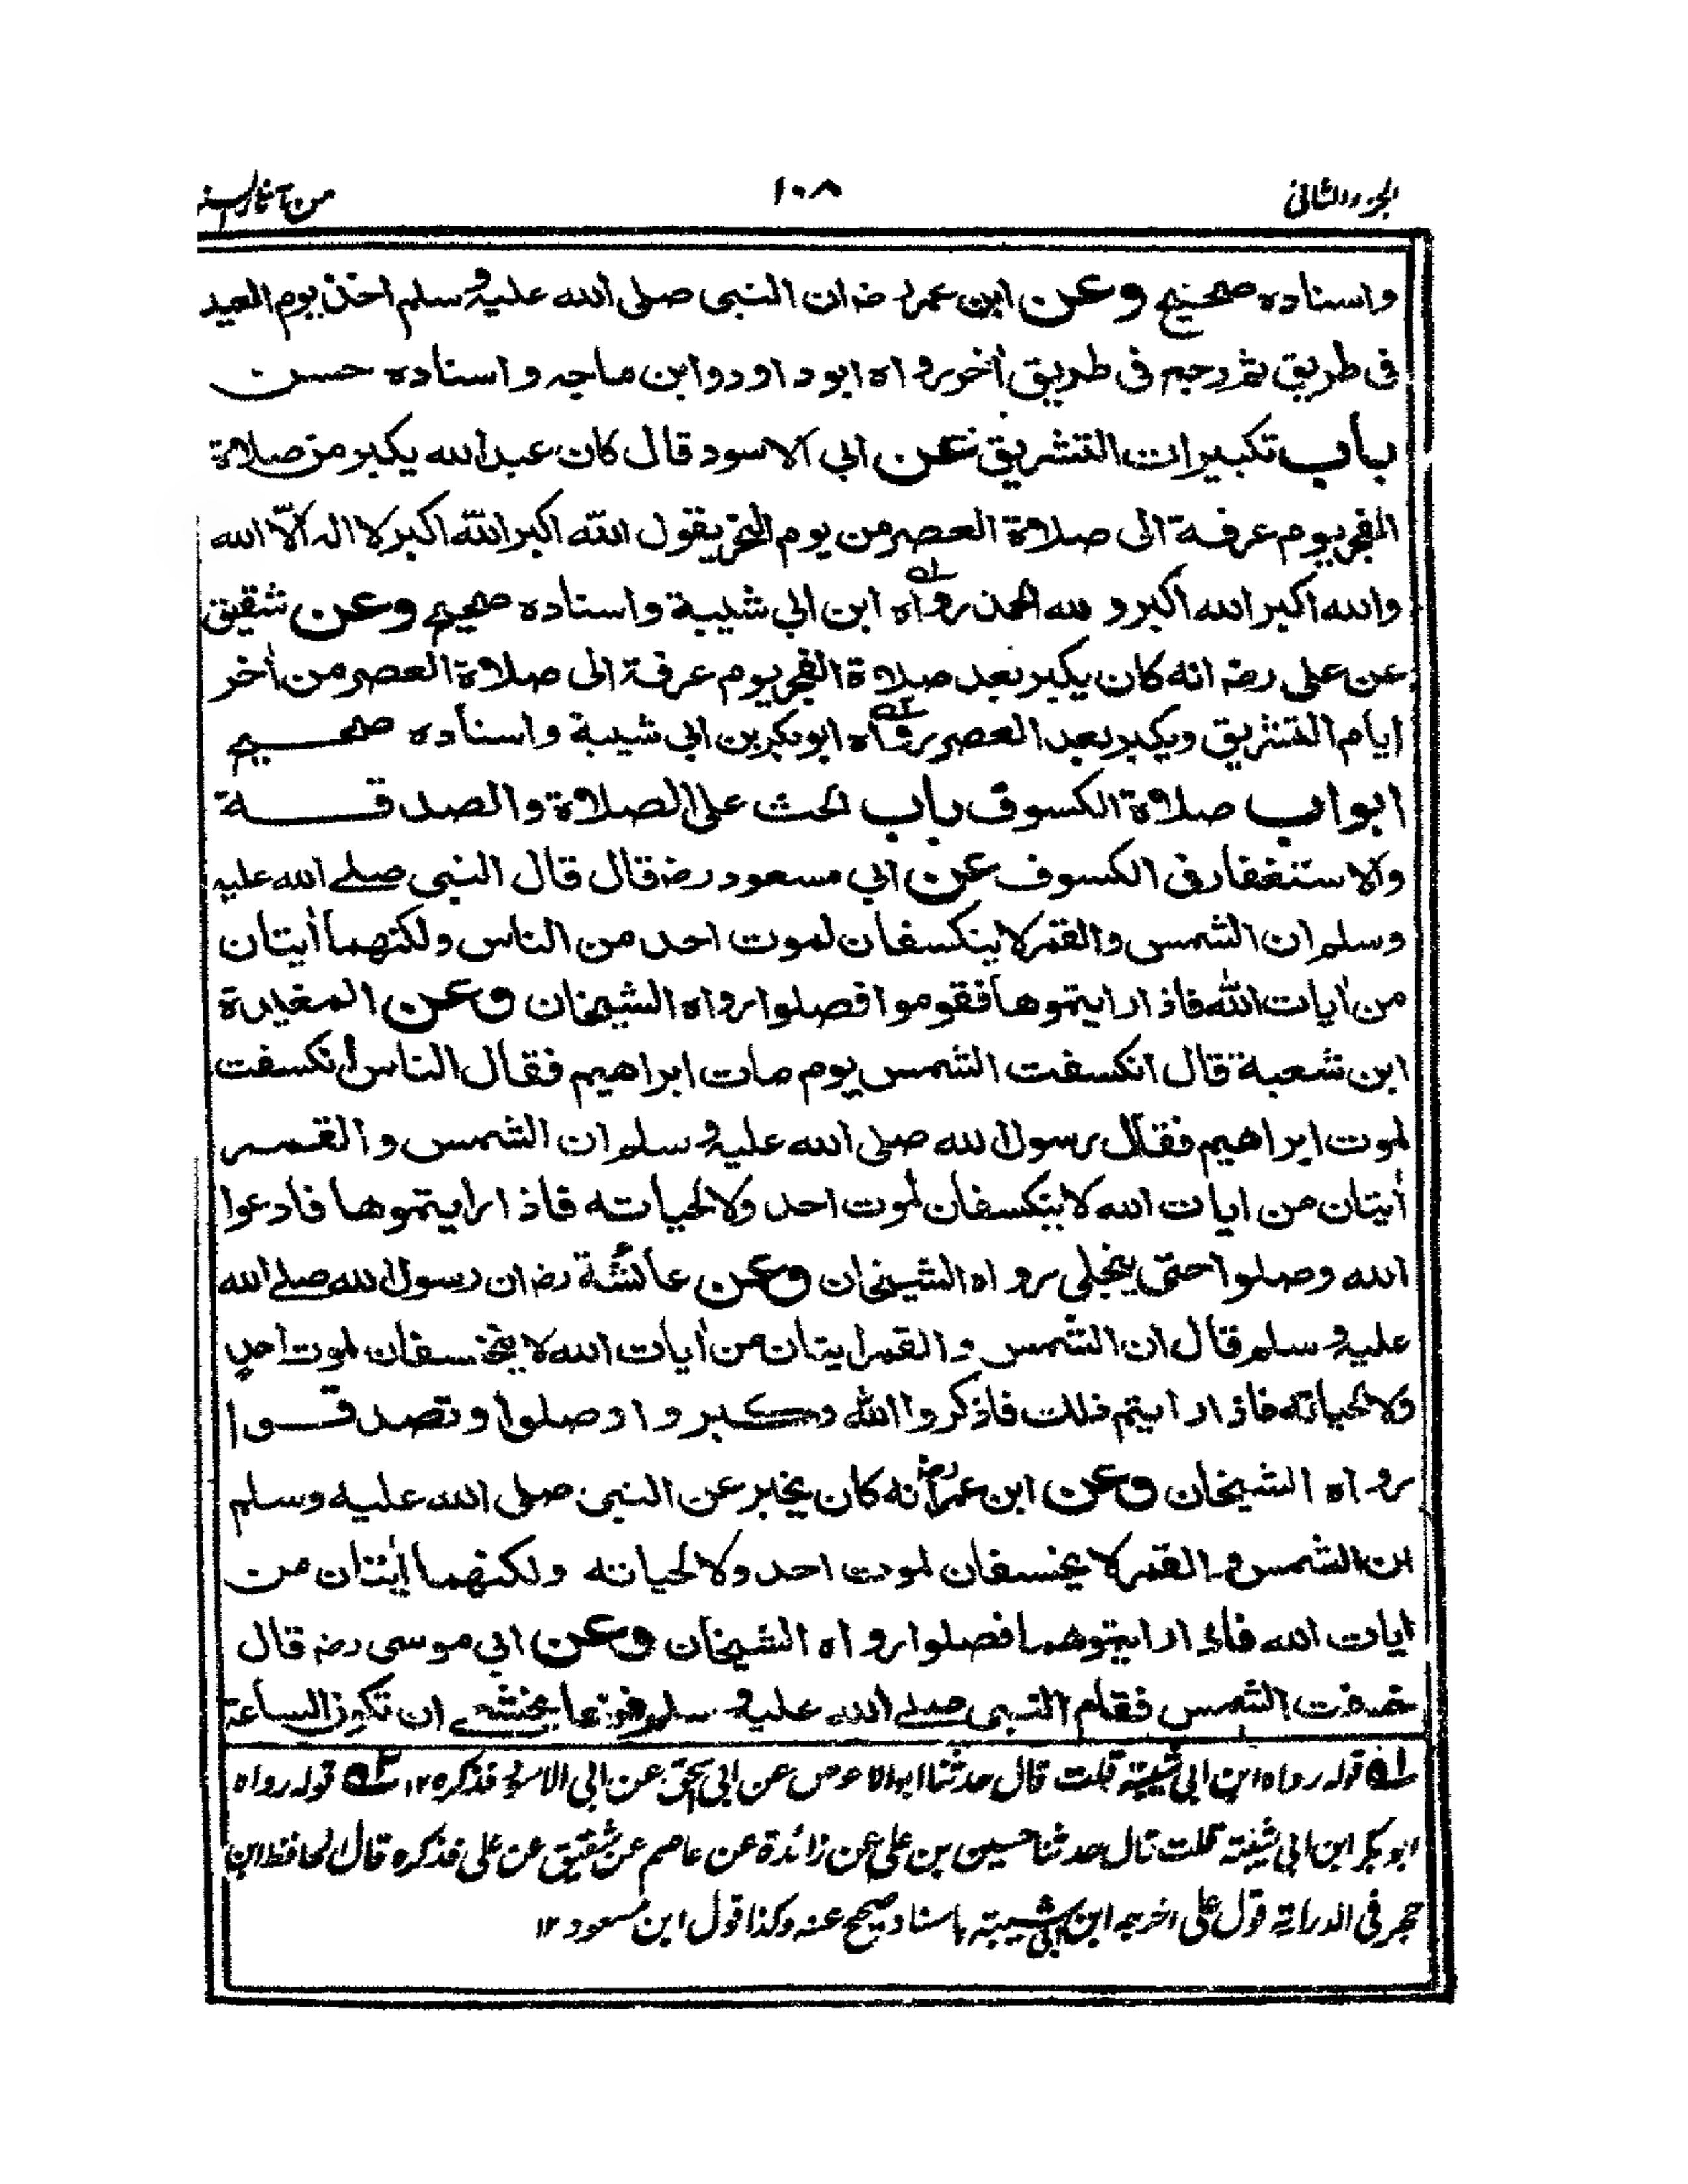 الجزء الثانی ١٠٨ من آثار السنن
واسناده صحيح وعن ابن عمر رضه ان النبى صلى الله عليه وسلم اخذ يوم العيد
فى طريق ثم رجع فى طريق اٰخر رواه ابو داود وابن ماجه واسناده حسن
باب تكبيرات التشريق عن ابي الاسود قال كان عبد الله يكبر من صلاة
الفجر يوم عرفة الى صلاة العصر من يوم النحر يقول الله اكبر الله اكبر لا اله الا الله
والله اكبر الله اكبر و لله الحمد رواه ابن ابي شيبة واسناده صحيح وعن شقيق
عن على رضه انه كان يكبر بعد صلاة الفجر يوم عرفة الى صلاة العصر من اٰخر
ايام التشريق ويكبر بعد العصر رواه ابو بكر بن ابي شيبة واسناده صحيح
ابواب صلاة الكسوف باب الحث على الصلاة والصدقة
والاستغفار فى الكسوف عن ابي مسعود رضه قال قال النبى صلے الله عليه
وسلم ان الشمس والقمر لا ينكسفان لموت احد من الناس ولكنهما اٰيتان
من اٰيات الله فاذا رايتموها فقوموا فصلوا رواه الشيخان وعن المغيرة
ابن شعبة قال انكسفت الشمس يوم مات ابراهيم فقال الناس انكسفت
لموت ابراهيم فقال رسول الله صلى الله عليه وسلم ان الشمس والقمر
اٰيتان من ايات الله لا ينكسفان لموت احد ولا لحياته فاذا رايتموها فادعوا
الله وصلوا حتى ينجلي رواه الشيخان وعن عائشة رضه ان رسول الله صلے الله
عليه وسلم قال ان الشمس والقمر ايتان من اٰيات الله لا يخسفان لموت احدٍ
ولا لحياته فاذا رايتم ذلك فاذكروا الله وكبروا وصلوا وتصدقوا
رواه الشيخان وعن ابن عمر رضه انه كان يخبر عن النبى صلى الله عليه وسلم
ان الشمس والقمر لا يخسفان لموت احد ولا لحياته ولكنهما اٰيتان من
ايات الله فاذا رايتموهما فصلوا رواه الشيخان وعن ابي موسى رضه قال
خسفت الشمس فقام النبى صلے الله عليه وسلم فزعا يخشے ان تكون الساعة
١ه قوله رواه ابن ابي شيبة قلت قال حدثنا ابو الاحوص عن ابي اسحق عن ابي الاسود فذكره ١٢ ٢ه قوله رواه
ابو بكر ابن ابي شيبة قلت قال حدثنا حسين بن على عن زائدة عن عاصم عن شقيق عن على فذكره قال الحافظ ابن
حجر فى الدراية قول على اخرجه ابن ابي شيبة باسناد صحيح عنه وكذا قول ابن مسعود ١٢